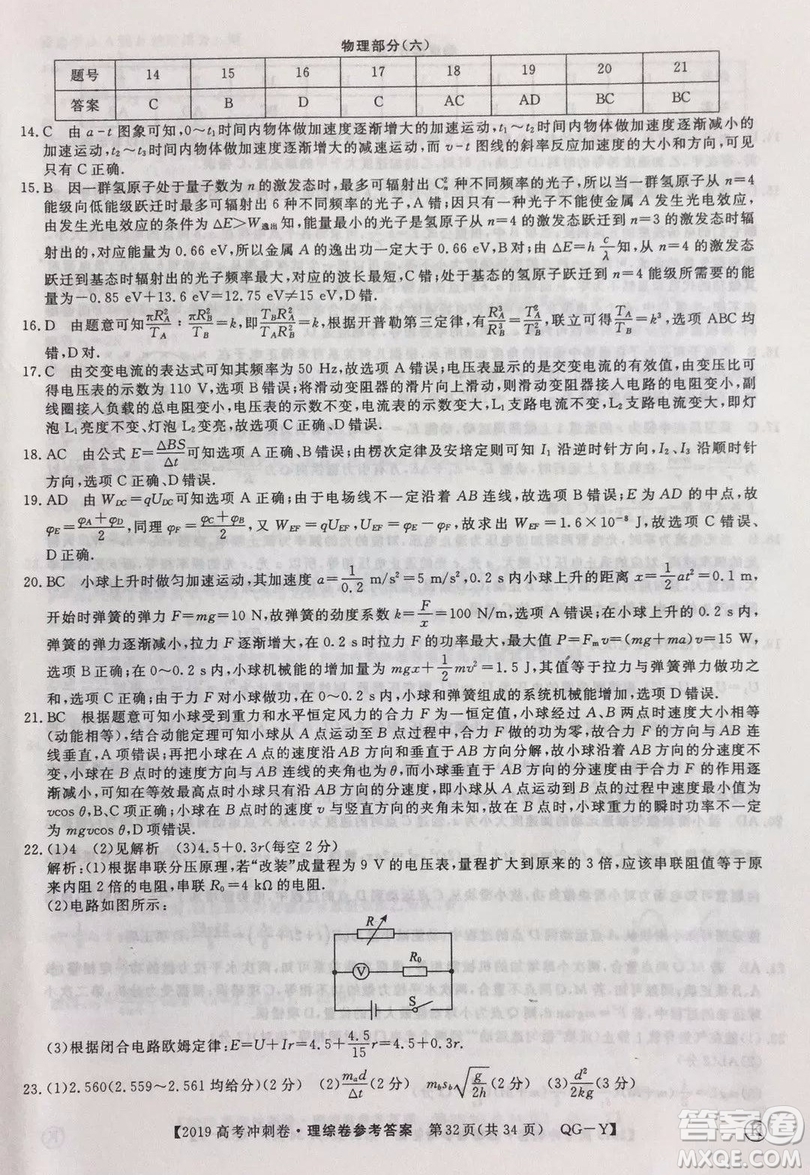 物理部分(六)
题号 14 15 16 17 18 19 20 21
答案 C B D C AC AD BC BC
14.C 由 a-t 图象可知,0~t₁时间内物体做加速度逐渐增大的加速运动,t₁~t₂时间内物体做加速度逐渐减小的
加速运动,t₂~t₃时间内物体做加速度逐渐增大的减速运动,而 v-t 图线的斜率反应加速度的大小和方向,可见
只有 C 正确。
15.B 因一群氢原子处于量子数为 n 的激发态时,最多可辐射出 C²ₙ 种不同频率的光子,所以当一群氢原子从 n=4
能级向低能级跃迁时最多可辐射出 6 种不同频率的光子,A 错;因为只有一种光子不能使金属 A 发生光电效应,
由发生光电效应的条件为 ΔE>W逸出可知,能量最小的光子是氢原子从 n=4 的激发态跃迁到 n=3 的激发态时辐
射出的,光子能量为 0.66 eV,所以金属 A 的逸出功一定大于 0.66 eV,B 对;由 ΔE=h c/λ 可知,从 n=4 的激发态
跃迁到基态时辐射出的光子频率最大,对应的波长最短,C 错;处于 n=4 的激发态的氢原子跃迁到基态时辐射的
能量为-0.85 eV+13.6 eV=12.75 eV≠15 eV,D 错。
16.D 由题意可知 πR²_A/T_A : πR²_B/T_B=k,即 T_BR²_A/T_AR²_B=k,根据开普勒第三定律,有 R³_A/R³_B=T²_A/T²_B,联立可得 T_A/T_B=k³,选项 ABC 均
错,D 对。
17.C 由交变电流的表达式可知其频率为 50 Hz,故选项 A 错误;电压表的示数显示的是交变电流的有效值,由此可
得电压表的示数为 110 V,选项 B 错误;将滑动变阻器的滑片向上滑动,滑动变阻器接入电路的电阻变小,副
线圈接入负载的总电阻变小,电压表的示数不变,电流表的示数变大,L₁支路电流不变,L₂支路电流变大,即灯
泡 L₁亮度不变、L₂变亮,故选项 C 正确,D 错误。
18.AC 由公式 E=ΔBS/Δt 可知选项 A 正确、B 错误;由楞次定律及安培定则可知 I₁ 沿逆时针方向,I₂、I₃ 沿顺时针
方向,选项 C 正确,D 错误。
19.AD 由 W_DC=qU_DC可知,选项 A 正确;由于电场线不一定沿着 AB 连线,故选项 B 错误;E 为 AD 的中点,故
φ_E=(φ_A+φ_D)/2,同理 φ_F=(φ_C+φ_B)/2,又 W_EF=qU_EF,U_EF=φ_E-φ_F,故求出 W_EF=1.6×10⁻⁸ J,故选项 C 错误、
D 正确。
20.BC 小球上升时做匀加速运动,其加速度 a=1/0.2 m/s²=5 m/s²,0.2 s 内小球上升的距离 x=1/2at²=0.1 m,
开始时弹簧的弹力 F=mg=10 N,故弹簧的劲度系数 k=F/x=100 N/m,选项 A 错误;在小球上升的 0.2 s 内,弹
簧的弹力逐渐减小,拉力 F 逐渐增大,故第 0.2 s 时拉力 F 的功率最大,最大值 P=F_m v=(mg+ma)v=15 W,
故选项 B 正确;在 0.2 s 的时间内,小球机械能的增量为 mgx+1/2mv²=1.5 J,其值等于拉力与弹簧弹力做功之
和,选项 C 正确;由于力 F 对小球做正功,小球和弹簧组成的系统机械能增大,选项 D 错误。
21.BC 根据题意可知小球受到重力和水平恒定风力的合力 F 为一恒定值,小球经过 A、B 两点时速度大小相等
(动能相等),结合动能定理可知小球从 A 点运动至 B 点过程中,合力做功为零,所以合力 F 方向垂直于 AB 连
线垂直,A 项错误;再把小球从 A 点抛出时的速度沿 AB 方向和垂直于 AB 方向分解,故小球沿着 AB 方向为匀
速直线运动,沿垂直于 AB 方向为匀减速运动,所以小球从 A 点运动至 B 点的过程中,速度先减小后增大,根据
对称性可知,小球在 B 点时速度方向与 AB 连线的夹角也为 θ,而小球垂直于 AB 方向的分速度由于合力的作用
逐渐减小,可知在等效最高点时小球动能最小,只剩下沿 AB 方向的分速度,所以小球运动过程中的最小速度为
vcos θ,B、C 项正确;小球在 B 点时的速度 v 与竖直方向的夹角未知,故在 B 点时,小球重力的瞬时功率不一定
为 mgvcos θ,D 项错误。
22.(1)4 (2)见解析 (3)4.5+0.3r(每空 2 分)
解析:(1)根据串联分压原理,若“改装”成量程为 9 V 的电压表,量程扩大到原来的 3 倍,应该串联阻值等于原
来内阻 2 倍的电阻,即串联 R₀=4 kΩ 的电阻。
(2)电路如图所示:
R
V R₀
S
(3)根据闭合电路欧姆定律:E=U+Ir=4.5+4.5/15 r=4.5+0.3r。
23.(1)2.560(2.559~2.561 均给分)(2 分) (2)m_a d/Δt(2 分) m_b s_b√(g/2h)(2 分) (3)d²/2kg(3 分)
【2019 高考冲刺卷·理综卷参考答案 第32页(共 34 页) QG-Y】
答案圈